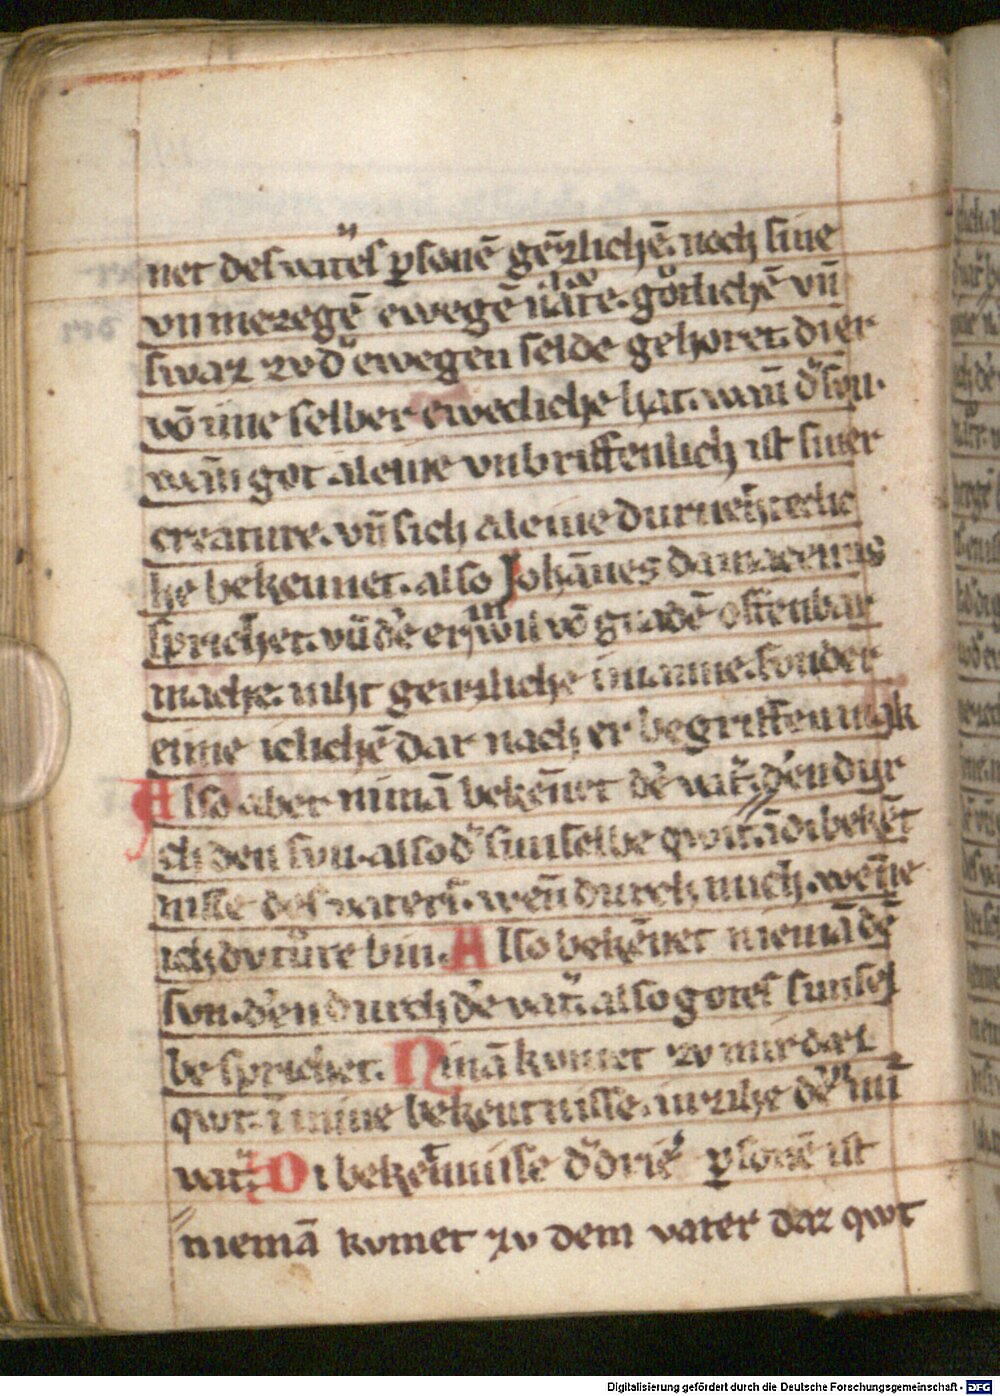 net des vat̾es ꝑsonē gēzlichē. noch sine
vnmezegē ewegē natͮre. gotlichē vn̄
swaz zv d̾ ewegen selde gehoret. di er
vō ime selber ewecliche hat. wan̄ d̾ svn.
wan̄ got aleine vnbriffenlich ist siner
creature. vn̄ sich aleine durnehtecli
che bekennet. also Johānes damacenus
sprichet. vn̄ dē er in wil vō gnadē offenbar
mache. niht genzliche sunder
eime iclichē dar nach er begriffen mak
Also aber nimā bekēnet dē vat̾. den dur
ch den svn. also d̾ sun selbe qwit. bekēt
nisse des vaters. wen̄ durch mich. wen̄e
ich dv tv̾re bin. Also bekēnet niemā dē
svn. den durch dē vat̾. also gotes sun sel
be sprichet. Nimā kvmet zv mir daz
qwt. ī mine bekentnisse. in zihe dē min
vat̾. Di bekentnisse d̾ drie ꝑsonē ist
niemā kvmet zv dem vater daz qwt
Digitalisierung gefördert durch die Deutsche Forschungsgemeinschaft - DFG